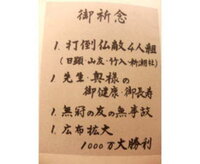 御祈念
1. 打倒仏敵4人組
(日顕・山友・竹入・新潮社)
1. 先生・奥様の
御健康・御長寿
1. 無冠の友の無事故
1. 広布拡大
1000万大勝利